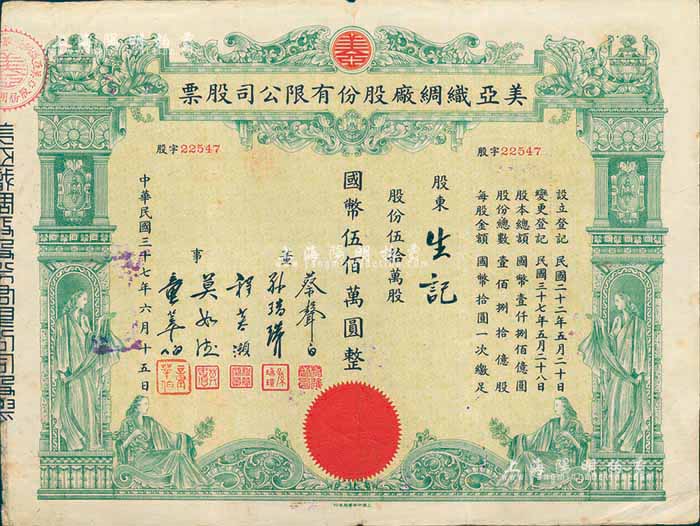 美亞織綢廠股份有限公司股票
股字22547
股字22547
設立登記 民國二十二年五月二十日
變更登記 民國三十七年五月二十八日
股本總額 國幣壹仟捌佰億圓
股份總數 壹佰捌拾億股
每股金額 國幣拾圓一次繳足
股東 生記
股份伍拾萬股
國幣伍佰萬圓整
董 蔡聲白
孫瑞璜
程慕灝
事 莫如德
童莘伯
中華民國三十七年六月十五日